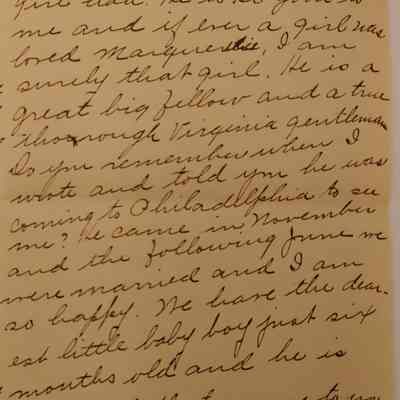 me and if ever a girl was
loved Marguerite, I am
surely that girl. He is a
great big fellow and a true
thorough Virginia gentleman
Do you remember when I
wrote and told you he was
coming to Philadelphia to see
me? He came in November
and the following June we
were married and I am
so happy. We have the dear-
est little baby boy just six
months old and he is